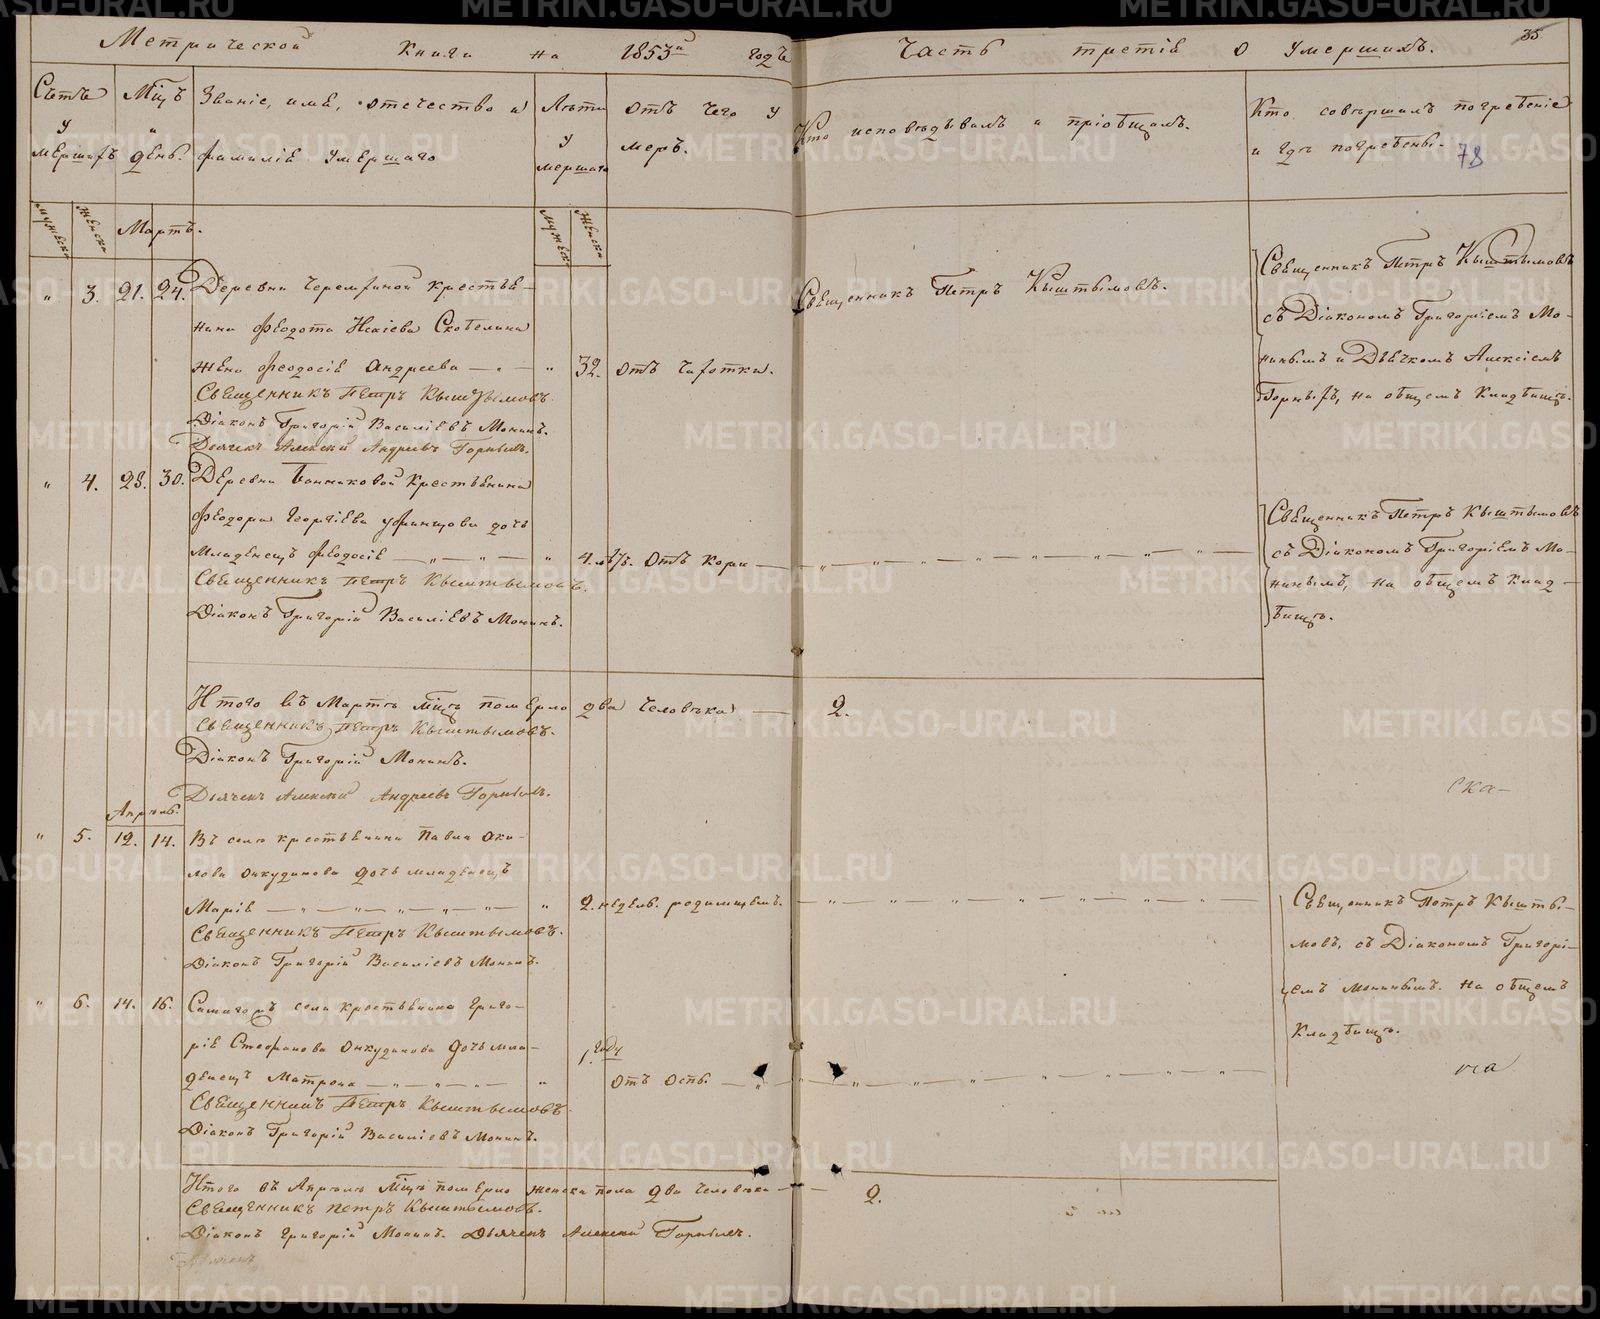 Метрической Книги на 1853й годъ
Часть третія о умершихъ.
35
Счетъ умершихъ
Мсцъ и день.
Званіе, имя, отечество и фамилія умершаго
Лѣта умершаго
Отъ чего умеръ.
Кто исповѣдывалъ и пріобщалъ.
Кто совершалъ погребеніе и гдѣ погребены.
78
Мужеска
Женска
Мартъ.
Мужеск
Женска
" 3. 21. 24. Деревни Черемхиной крестья-
нина Феодота Исаіева Скобелина
жена Феодосія Андреева — " — " 32. отъ чахотки.
Священникъ Петръ Кыштымовъ.
Священникъ Петръ Кыштымовъ
съ Діакономъ Григоріемъ Мо-
нинымъ и Дьячкомъ Алексіемъ
Горныхъ, на общемъ кладбищѣ.
Священникъ Петръ Кыштымовъ
Діаконъ Григорій Василіевъ Монинъ.
Дьячекъ Алексѣй Андреевъ Горныхъ.
" 4. 28. 30. Деревни Банниковой крестьянина
Феодора Георгіева дочь
младенецъ Феодосія — " — " — " 4. лѣтъ. Отъ кори — " — " — " — " — " —
Священникъ Петръ Кыштымовъ
съ Діакономъ Григоріемъ Мо-
нинымъ, на общемъ клад-
бищѣ.
Священникъ Петръ Кыштымовъ.
Діаконъ Григорій Василіевъ Монинъ.
Итого въ Мартѣ мсцѣ померло два человѣка — 2.
Священникъ Петръ Кыштымовъ.
Діаконъ Григорій Монинъ.
Дьячекъ Алексѣй Андреевъ Горныхъ.
ска-
Апрѣль.
" 5. 12. 14. Въ селѣ крестьянина Павла Аки-
лова Анкудинова дочь младенецъ
Марія — " — " — " — " — " 2. недѣль. родимцемъ. — " — " — " — " —
Священникъ Петръ Кышты-
мовъ, съ Діакономъ Григорі-
емъ Монинымъ. на общемъ
кладбищѣ.
Священникъ Петръ Кыштымовъ.
Діаконъ Григорій Василіевъ Монинъ.
" 6. 14. 16. села крестьянина Григо-
рія Стефанова Анкудинова дочь мла-
денецъ Матрона — " — " — " 1. году отъ оспы. — " — " — " — " —
го
Священникъ Петръ Кыштымовъ.
Діаконъ Григорій Василіевъ Монинъ.
Итого въ Апрѣлѣ мсцѣ померло женска пола два человѣка — 2.
Священникъ Петръ Кыштымовъ.
Діаконъ Григорій Монинъ. Дьячекъ Алексѣй Горныхъ.
METRIKI.GASO-URAL.RU